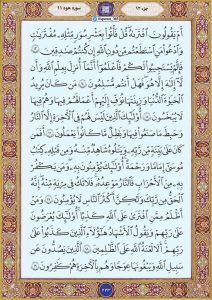 جزء ۱۲
سوره هود ۱۱
أَمْ يَقُولُونَ ٱفْتَرَىٰهُ قُلْ فَأْتُوا۟ بِعَشْرِ سُوَرٍ مِّثْلِهِۦ مُفْتَرَيَٰتٍ
وَٱدْعُوا۟ مَنِ ٱسْتَطَعْتُم مِّن دُونِ ٱللَّهِ إِن كُنتُمْ صَٰدِقِينَ ۱۳
فَإِلَّمْ يَسْتَجِيبُوا۟ لَكُمْ فَٱعْلَمُوٓا۟ أَنَّمَآ أُنزِلَ بِعِلْمِ ٱللَّهِ وَأَن
لَّآ إِلَٰهَ إِلَّا هُوَ فَهَلْ أَنتُم مُّسْلِمُونَ ۱۴ مَن كَانَ يُرِيدُ
ٱلْحَيَوٰةَ ٱلدُّنْيَا وَزِينَتَهَا نُوَفِّ إِلَيْهِمْ أَعْمَٰلَهُمْ فِيهَا وَهُمْ فِيهَا
لَا يُبْخَسُونَ ۱۵ أُو۟لَٰٓئِكَ ٱلَّذِينَ لَيْسَ لَهُمْ فِى ٱلْـَٔاخِرَةِ إِلَّا
ٱلنَّارُ وَحَبِطَ مَا صَنَعُوا۟ فِيهَا وَبَٰطِلٌ مَّا كَانُوا۟ يَعْمَلُونَ ۱۶
أَفَمَن كَانَ عَلَىٰ بَيِّنَةٍ مِّن رَّبِّهِۦ وَيَتْلُوهُ شَاهِدٌ مِّنْهُ وَمِن قَبْلِهِۦ كِتَٰبُ
مُوسَىٰٓ إِمَامًا وَرَحْمَةً أُو۟لَٰٓئِكَ يُؤْمِنُونَ بِهِۦ وَمَن يَكْفُرْ
بِهِۦ مِنَ ٱلْأَحْزَابِ فَٱلنَّارُ مَوْعِدُهُۥ فَلَا تَكُ فِى مِرْيَةٍ مِّنْهُ إِنَّهُ
ٱلْحَقُّ مِن رَّبِّكَ وَلَٰكِنَّ أَكْثَرَ ٱلنَّاسِ لَا يُؤْمِنُونَ ۱۷ وَمَنْ
أَظْلَمُ مِمَّنِ ٱفْتَرَىٰ عَلَى ٱللَّهِ كَذِبًا أُو۟لَٰٓئِكَ يُعْرَضُونَ
عَلَىٰ رَبِّهِمْ وَيَقُولُ ٱلْأَشْهَٰدُ هَٰٓؤُلَآءِ ٱلَّذِينَ كَذَبُوا۟ عَلَىٰ
رَبِّهِمْ أَلَا لَعْنَةُ ٱللَّهِ عَلَى ٱلظَّٰلِمِينَ ۱۸ ٱلَّذِينَ يَصُدُّونَ عَن
سَبِيلِ ٱللَّهِ وَيَبْغُونَهَا عِوَجًا وَهُم بِٱلْـَٔاخِرَةِ هُمْ كَٰفِرُونَ ۱۹
۲۲۳